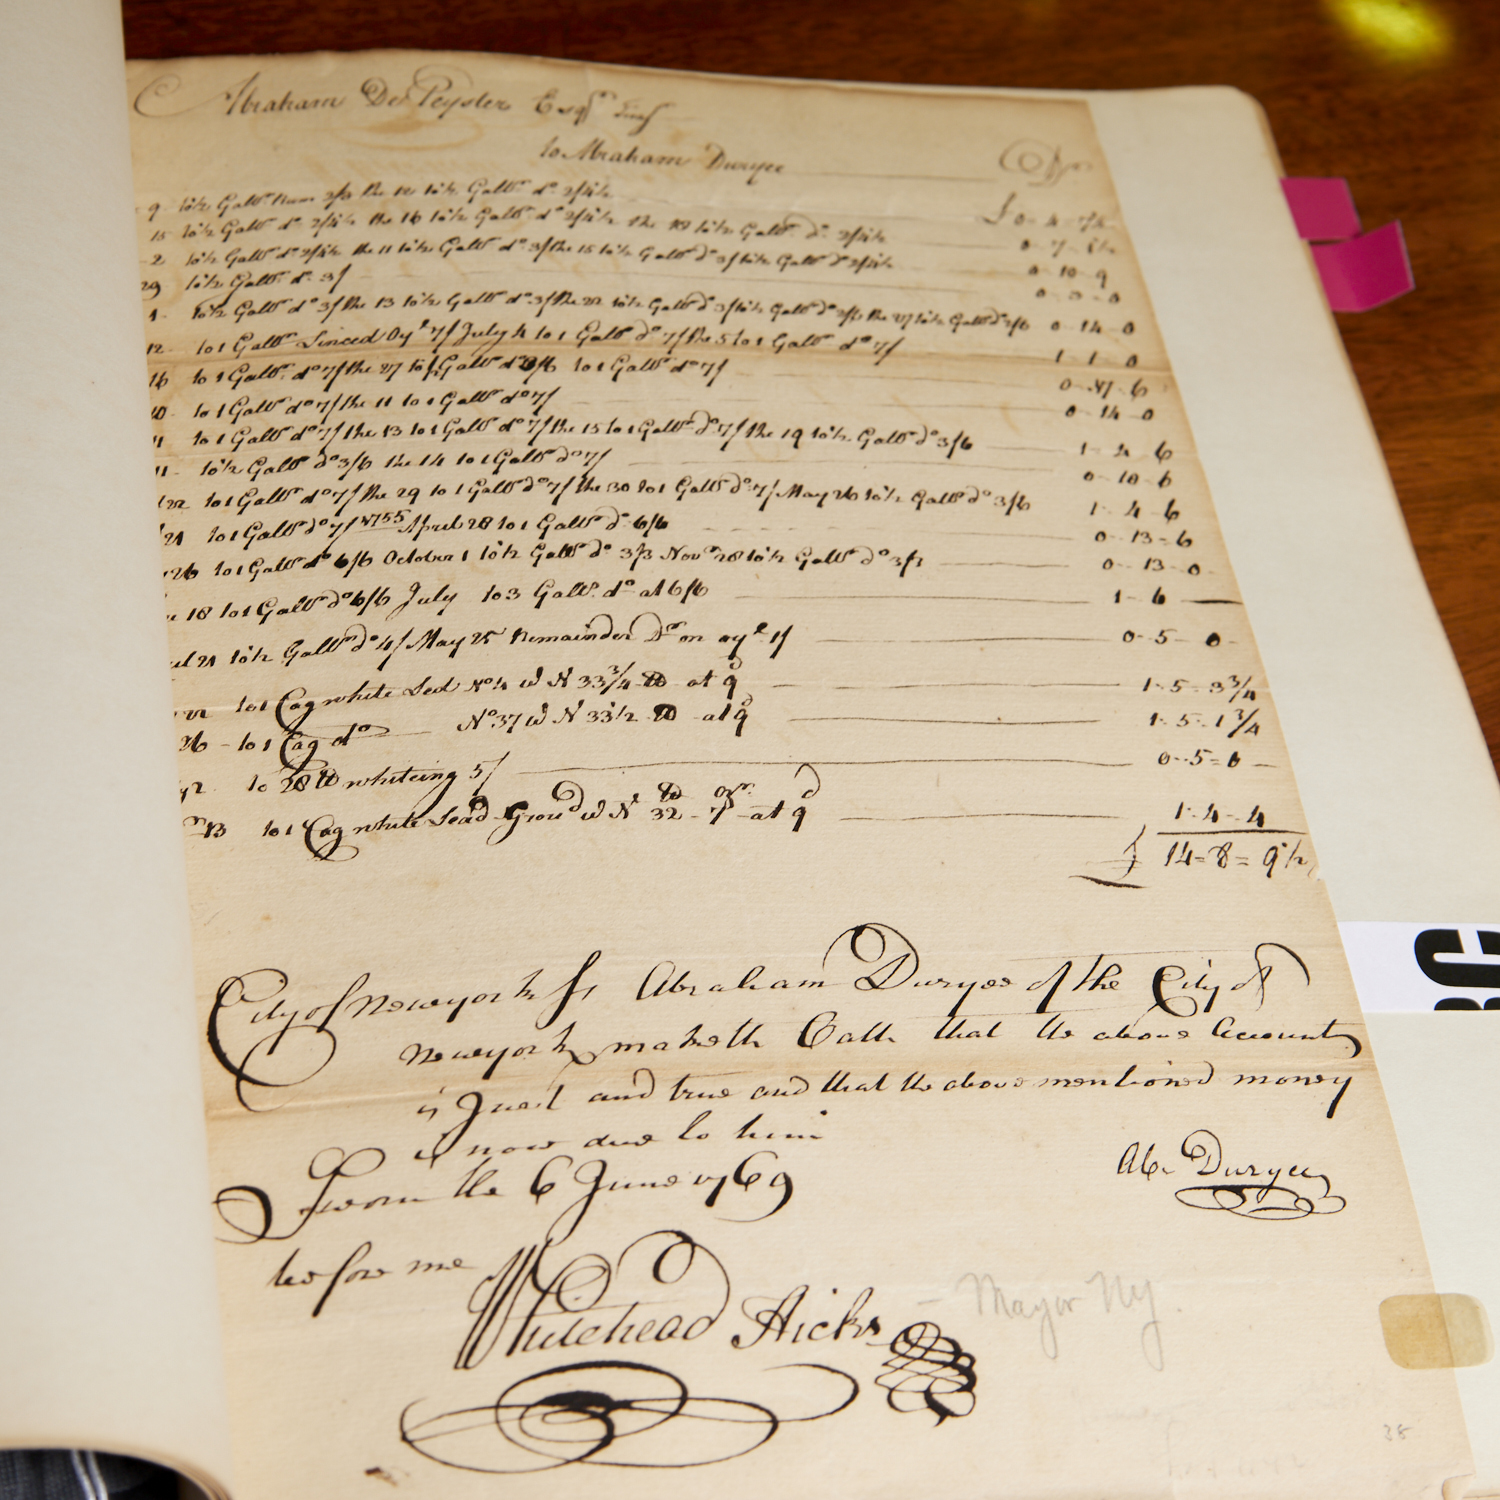 Abraham De Peyster Esqr
to Abraham Duryee Dr
9 to ½ Galln Rum 2/3 the 12 to ½ Galln do 2/4½
15 to ½ Galln do 2/4½ the 16 to ½ Galln do 2/4½ the 18 to ½ Galln do 2/4½ £0-4-7½
2 to ½ Galln do 2/4½ the 11 to ½ Galln do 3/ the 15 to ½ Galln do 3/ to ½ Galln do 2/4½ 0-10-9
29 to ½ Galln do 3/ 0-3-0
1 to ½ Galln do 3/ the 13 to ½ Galln do 3/ the 22 to ½ Galln do 3/ to ½ Galln do 2/6 the 27 to ½ Galln do 2/6 0-14-0
12 to 1 Galln Linced Oyl 7/ July 4 to 1 Galln do 7/ the 5 to 1 Galln do 7/ 1-1-0
16 to 1 Galln do 7/ the 27 to ½ Galln do 3/6 to 1 Galln do 7/ 0-17-6
10 to 1 Galln do 7/ the 11 to 1 Galln do 7/ 0-14-0
11 to 1 Galln do 7/ the 13 to 1 Galln do 7/ the 15 to 1 Galln do 7/ the 19 to ½ Galln do 3/6 1-4-6
11 to ½ Galln do 3/6 the 14 to 1 Galln do 7/ 0-10-6
22 to 1 Galln do 7/ the 29 to 1 Galln do 7/ the 30 to 1 Galln do 7/ May 26 to ½ Galln do 3/6 1-4-6
21 to 1 Galln do 7/ 1755 April 28 to 1 Galln do 6/6 0-13-6
26 to 1 Galln do 6/6 October 1 to ½ Galln do 3/3 Novr 28 to ½ Galln do 3/3 0-13-0
18 to 1 Galln do 6/6 July to 3 Galln do at 6/6 1-6
21 to ½ Galln do 4/ May 25 Remainder Dr on oyl 1/ 0-5-0
22 to 1 Cag white Led No 4 W N 33¾ lb at 9d 1-5-3¾
26 to 1 Cag do No 37 W N 33½ lb at 9d 1-5-1¾
to 28 lb whiteing 5/ 0-5-0
13 to 1 Cag white Lead Groud W N 32 lb 7 ozr at 9d 1-4-4
£ 14-8=9½
City of Newyork Ss Abraham Duryee of the City of
Newyork maketh Oath that the above Account
is Just and true and that the above mentioned money
is now due to him
Sworn the 6 June 1769
Abr Duryee
before me
Whitehead Hicks - Mayor NY.
38